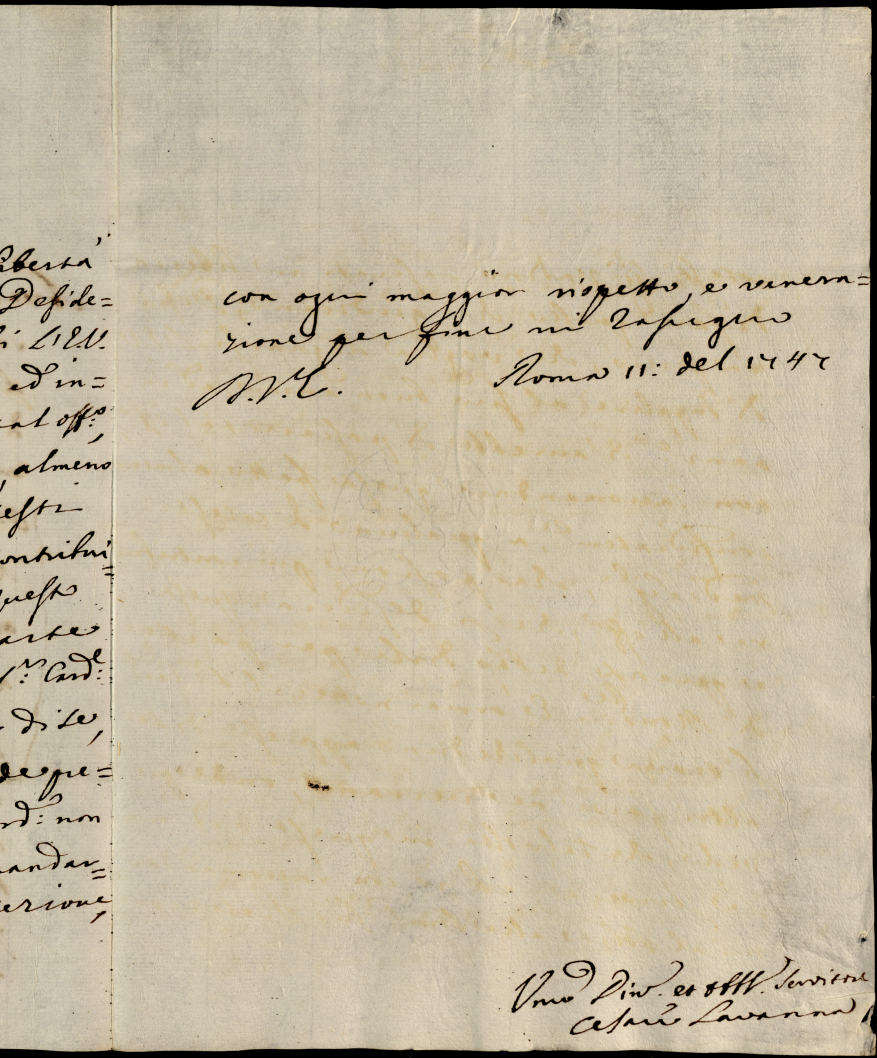 libertà
Deside=
di L'E.V.
ed in=
off.o,
almeno
questi
contribui=
questo
parte
S.r Card.e
di se,
pe=
Card: non
mandar=
con ogni maggior rispetto, e venera=
zione per fine mi rassegno
D.V.E.
Roma 11: del 1747
Umo Divmo et obblmo Servitore
Cesare Lavanna